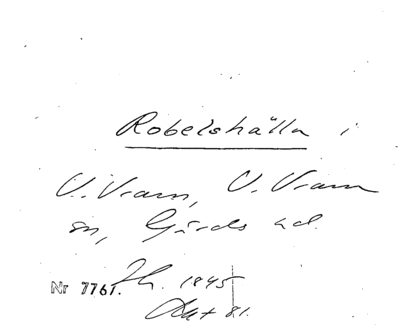 Robelshälla i
V. Vram, V. Vram
sn, Gärds hd.
Nr 7761. Jh. 1845
Akt 81.